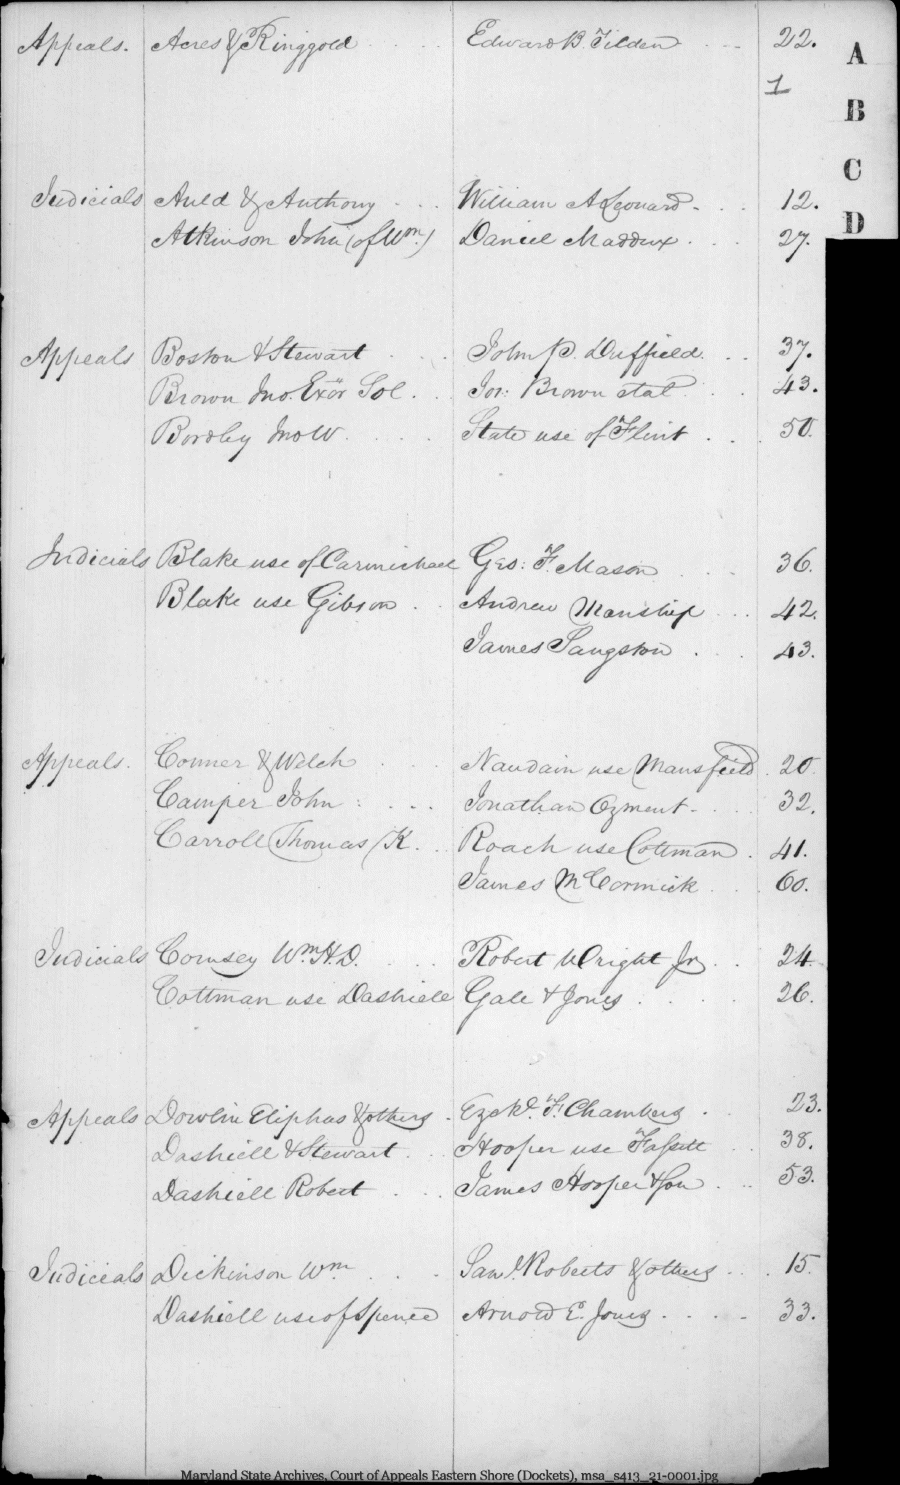 Appeals. Acres & Ringgold Edward B. Tilden 22.
1
A
B
C
D
Judicials Auld & Anthony William A Leonard 12.
Atkinson John (of Wm.) Daniel Maddux 27.
Appeals Boston & Stewart John P. Duffield. 37.
Brown Jno. Exor Sol. Jos: Brown et al 43.
Bordley Jno W. State use of Flint 50.
Judicials Blake use of Carmichael Geo: F. Mason 36.
Blake use Gibson Andrew Manship 42.
James Sangston 43.
Appeals. Conner & Welch Naudain use Mansfield 20.
Camper John : Jonathan Ozment 32.
Carroll Thomas K. Roach use Cottman 41.
James McCormick 60.
Judicials Comsey Wm. H. D. Robert Wright Jr 24.
Cottman use Dashiell Gale & Jones 26.
Appeals Dowlin Eliphas & others Ezekl. F. Chambers 23.
Dashiell & Stewart Hooper use Fassitt 38.
Dashiell Robert James Hooper & Son 53.
Judicials Dickinson Wm. Saml. Roberts & others 15.
Dashiell use of Spence Arnold E. Jones 33.
Maryland State Archives, Court of Appeals Eastern Shore (Dockets), msa_s413_21-0001.jpg